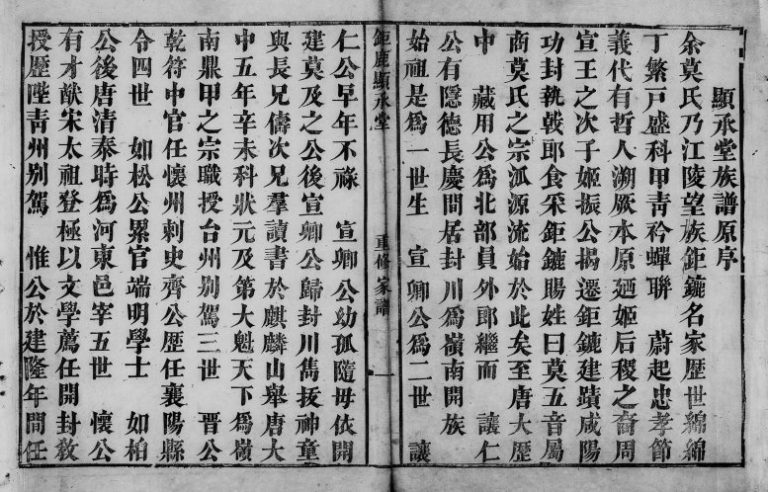 顯承堂族譜原序
余莫氏乃江陵望族鉅鏕名家歷世綿綿
丁繁戸盛科甲靑衿蟬聯 蔚起忠孝節
義代有哲人溯厥本原廼姬后稷之裔周
宣王之次子姬振公揭遷鉅鏕建蹟咸陽
功封執戟郎食采鉅鏕賜姓曰莫五音屬
商莫氏之宗派源流始於此矣至唐大歷
中 藏用公爲北部員外郎繼而 讓仁
公有隱德長慶間居封川爲嶺南開族
始祖是爲一世生 宣卿公爲二世 讓
鉅鹿顯承堂 重修家譜 一
仁公早年不祿 宣卿公幼孤隨毋依開
建莫及之公後宣卿公歸封川雋拔神童
與長兄儔次兄羣讀書於麒麟山舉唐大
中五年辛未科狀元及第大魁天下爲嶺
南鼎甲之宗職授台州別駕三世 晋公
乾符中官任懷州刺史齊公歷任襄陽縣
令四世 如松公累官端明學士 如柏
公後唐清泰時爲河東邑宰五世 懷公
有才猷宋太祖登極以文學薦任開封敎
授歷陞靑州別駕 惟公於建隆年間任